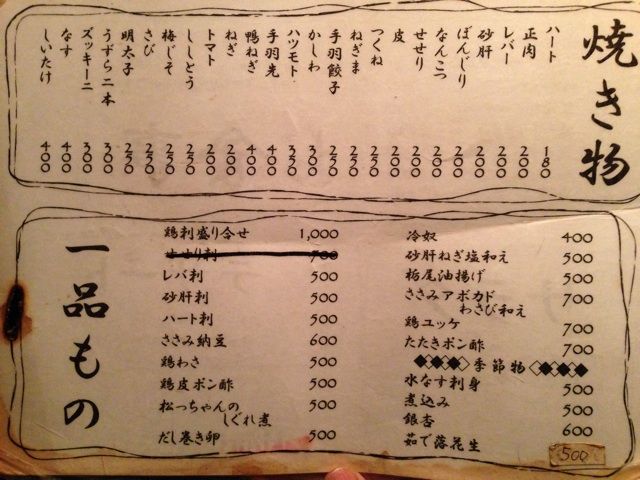 焼き物
ハート 180
正肉 200
レバー 200
砂肝 200
ぼんじり 200
なんこつ 200
せせり 200
皮 200
つくね 250
ねぎま 250
手羽餃子 250
かしわ 300
ハツモト 350
手羽先 400
鴨ねぎ 400
ねぎ 200
トマト 200
ししとう 250
梅じそ 250
さび 250
明太子 250
うずら二本 300
ズッキーニ 300
なす 400
しいたけ 400
一品もの
鶏刺盛り合せ 1,000
せせり刺 700
レバ刺 500
砂肝刺 500
ハート刺 500
ささみ納豆 600
鶏わさ 500
鶏皮ポン酢 500
松っちゃんの
しぐれ煮 500
だし巻き卵 500
冷奴 400
砂肝ねぎ塩和え 500
栃尾油揚げ 500
ささみアボカド 700
わさび和え
鶏ユッケ 700
たたきポン酢 700
◆◇◆◇季節物◇◆◇◆
水なす刺身 500
煮込み 500
銀杏 600
茹で落花生 500